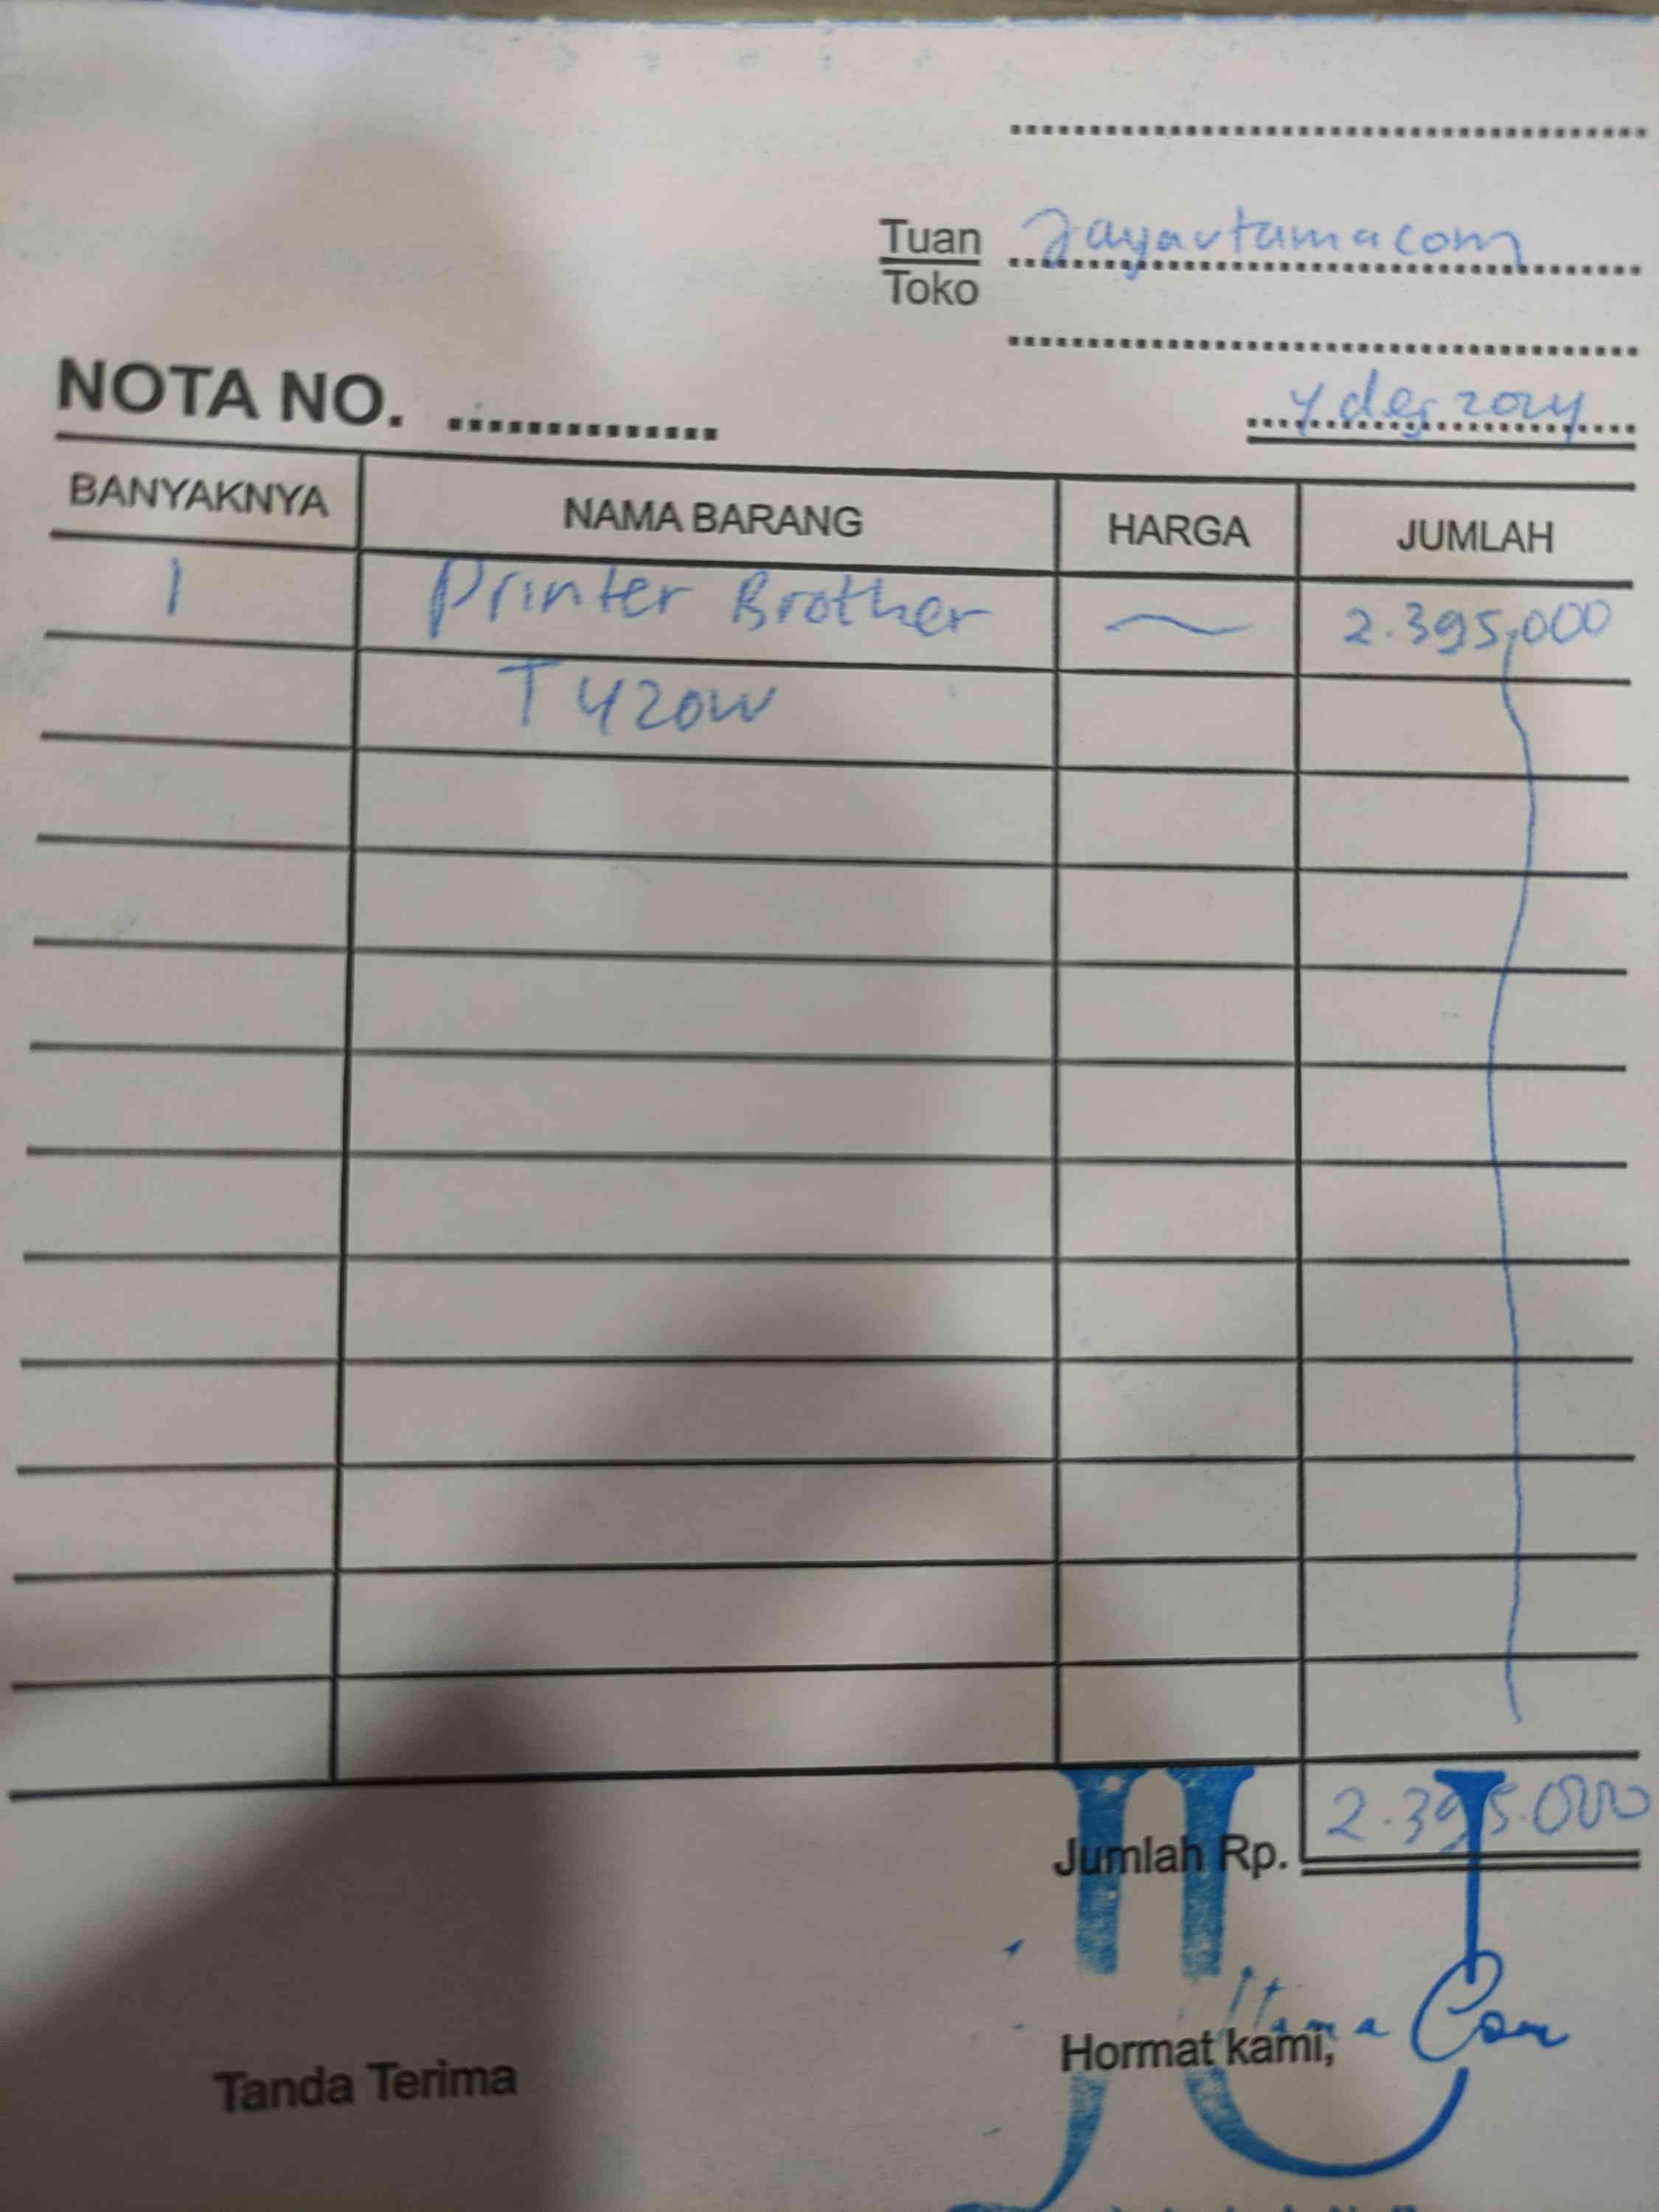 Tuan Jayautamacom
Toko
NOTA NO. 4 des 2024
BANYAKNYA NAMA BARANG HARGA JUMLAH
1 Printer Brother 2.395,000
T420W
Jumlah Rp. 2.395.000
Tanda Terima Hormat kami,
JU
Utama Com